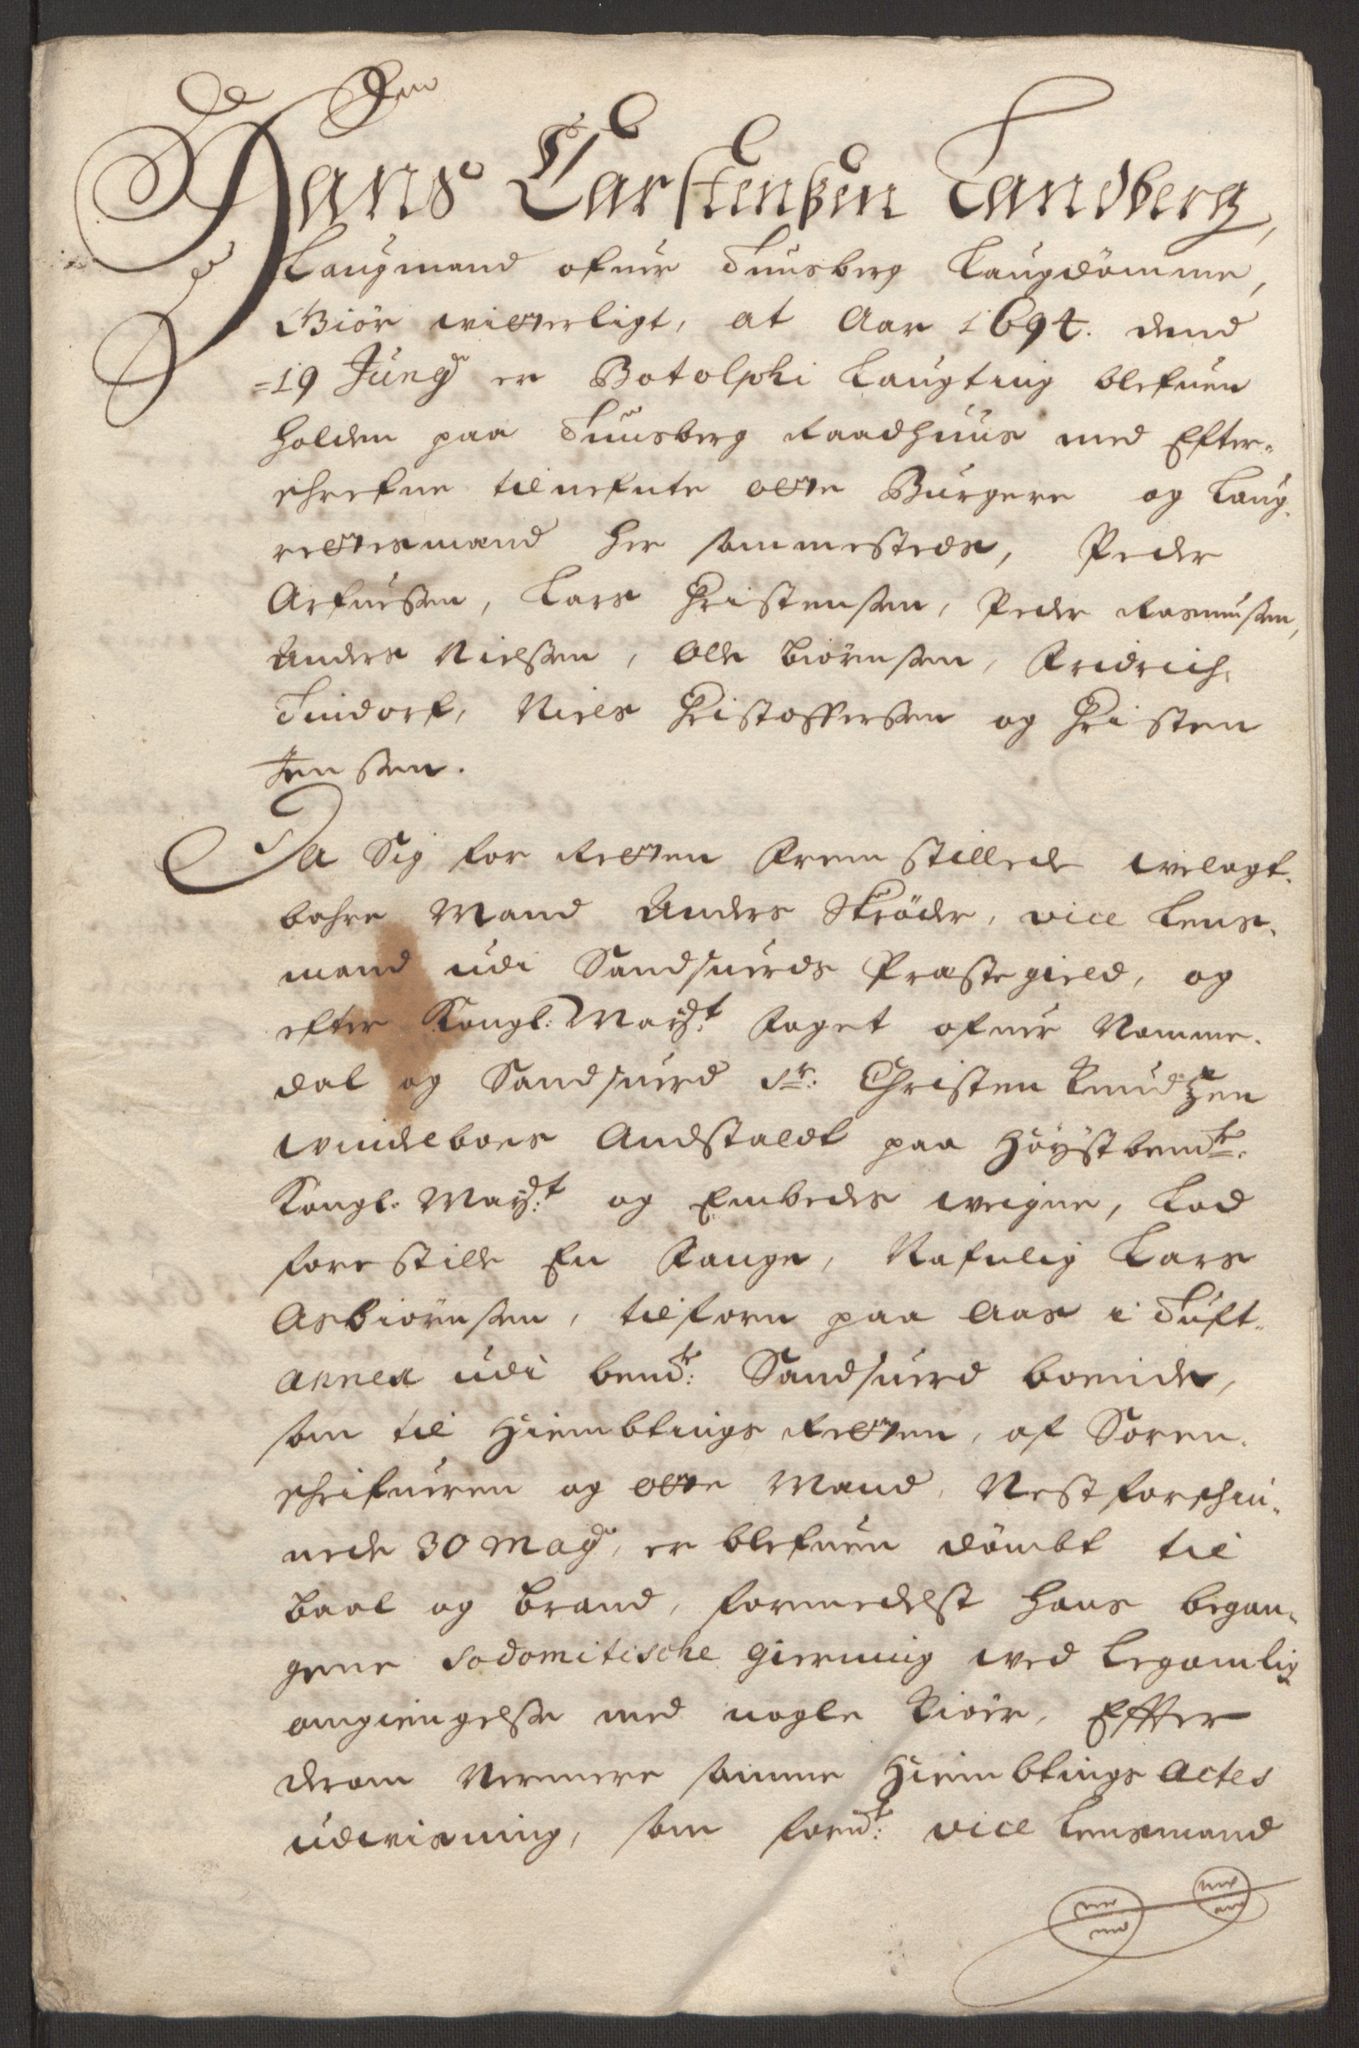 Hans Carstenßen Tandberg,
Laugmand ofuer Tunsberg Laugdömme,
Giör witterligt, at Aar 1694. dend
=19 Junÿ er Botolphi Laugting blefuen
holden paa Tunsberg Raadhuus med Efter-
schrefne tilnefnte otte Burgere og Laug-
rettesmænd her sammesteds, Peder
Arfuesen, Lars Christensen, Peder Rasmussen,
Anders Nielsen, Ole Biörnsen, Fridrich
Tindorf, Niels Christoffersen og Christen
Jensen.
Da Sig for Retten Fremstillede welagt-
bahre Mand Anders Skröder, vice Lens-
mand udi Sandsuerds Præstegield, og
efter Kongl: Mayst: Foget ofuer Numme-
dal og Sandsuerd Sr: Christen Knudtzen
Windelboes Andstaldt paa Höÿstbemte:
Kongl: Mayst: og Embedes weigne, Lod
forestille En Fange, Nafnlig Lars
Asbiörnsen, tilforn paa Aas i Tuft-
annex udi bemte: Sandsuerd boende,
som til Hiembtings Retten, af Soren-
schrifueren og otte Mænd, Nestforschin-
nede 30 Maÿ, er blefuen dömbt til
Baal og Brand, formedelst hans began-
gene sodomitische gierning wed Legomlig
omgiengelse med nogle Kiör, Effter
derom Nermere samme Hiembtings Actes
udwisning, som forne: vice Lensmand